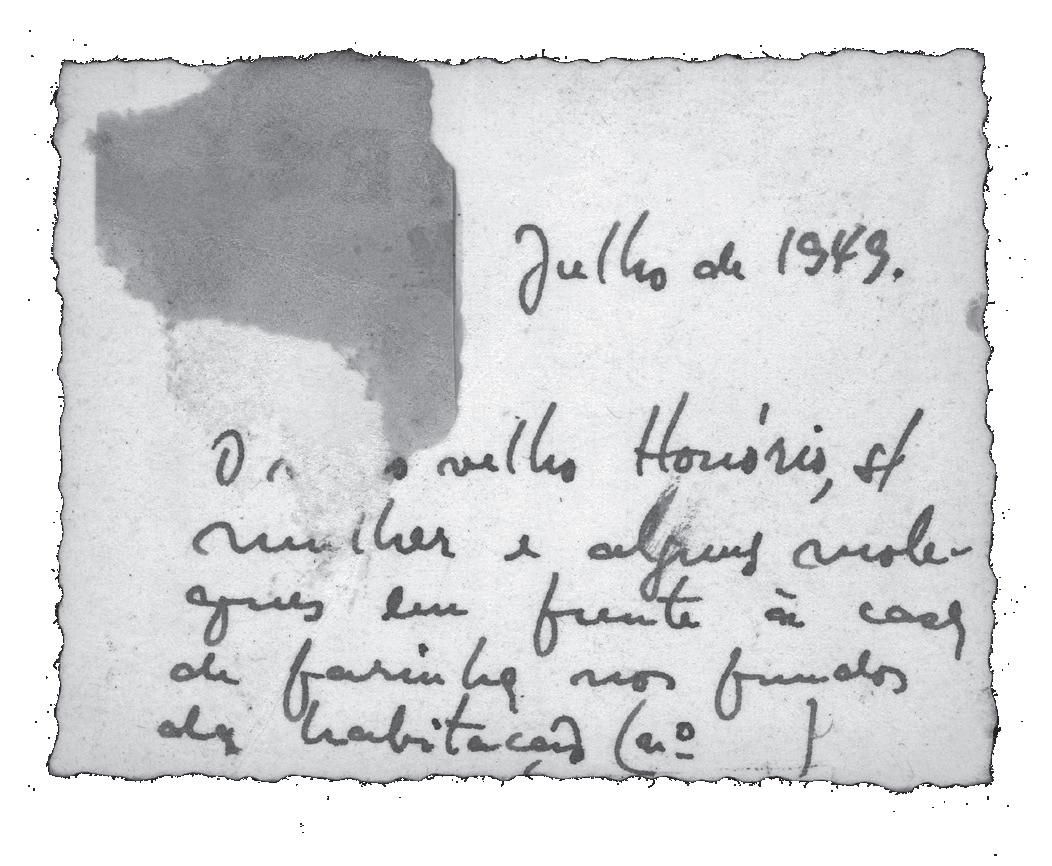 Julho de 1949.
O velho Honório, s/
mulher e alguns mole-
ques em frente à casa
de farinha nos fundos
da habitação (nº )